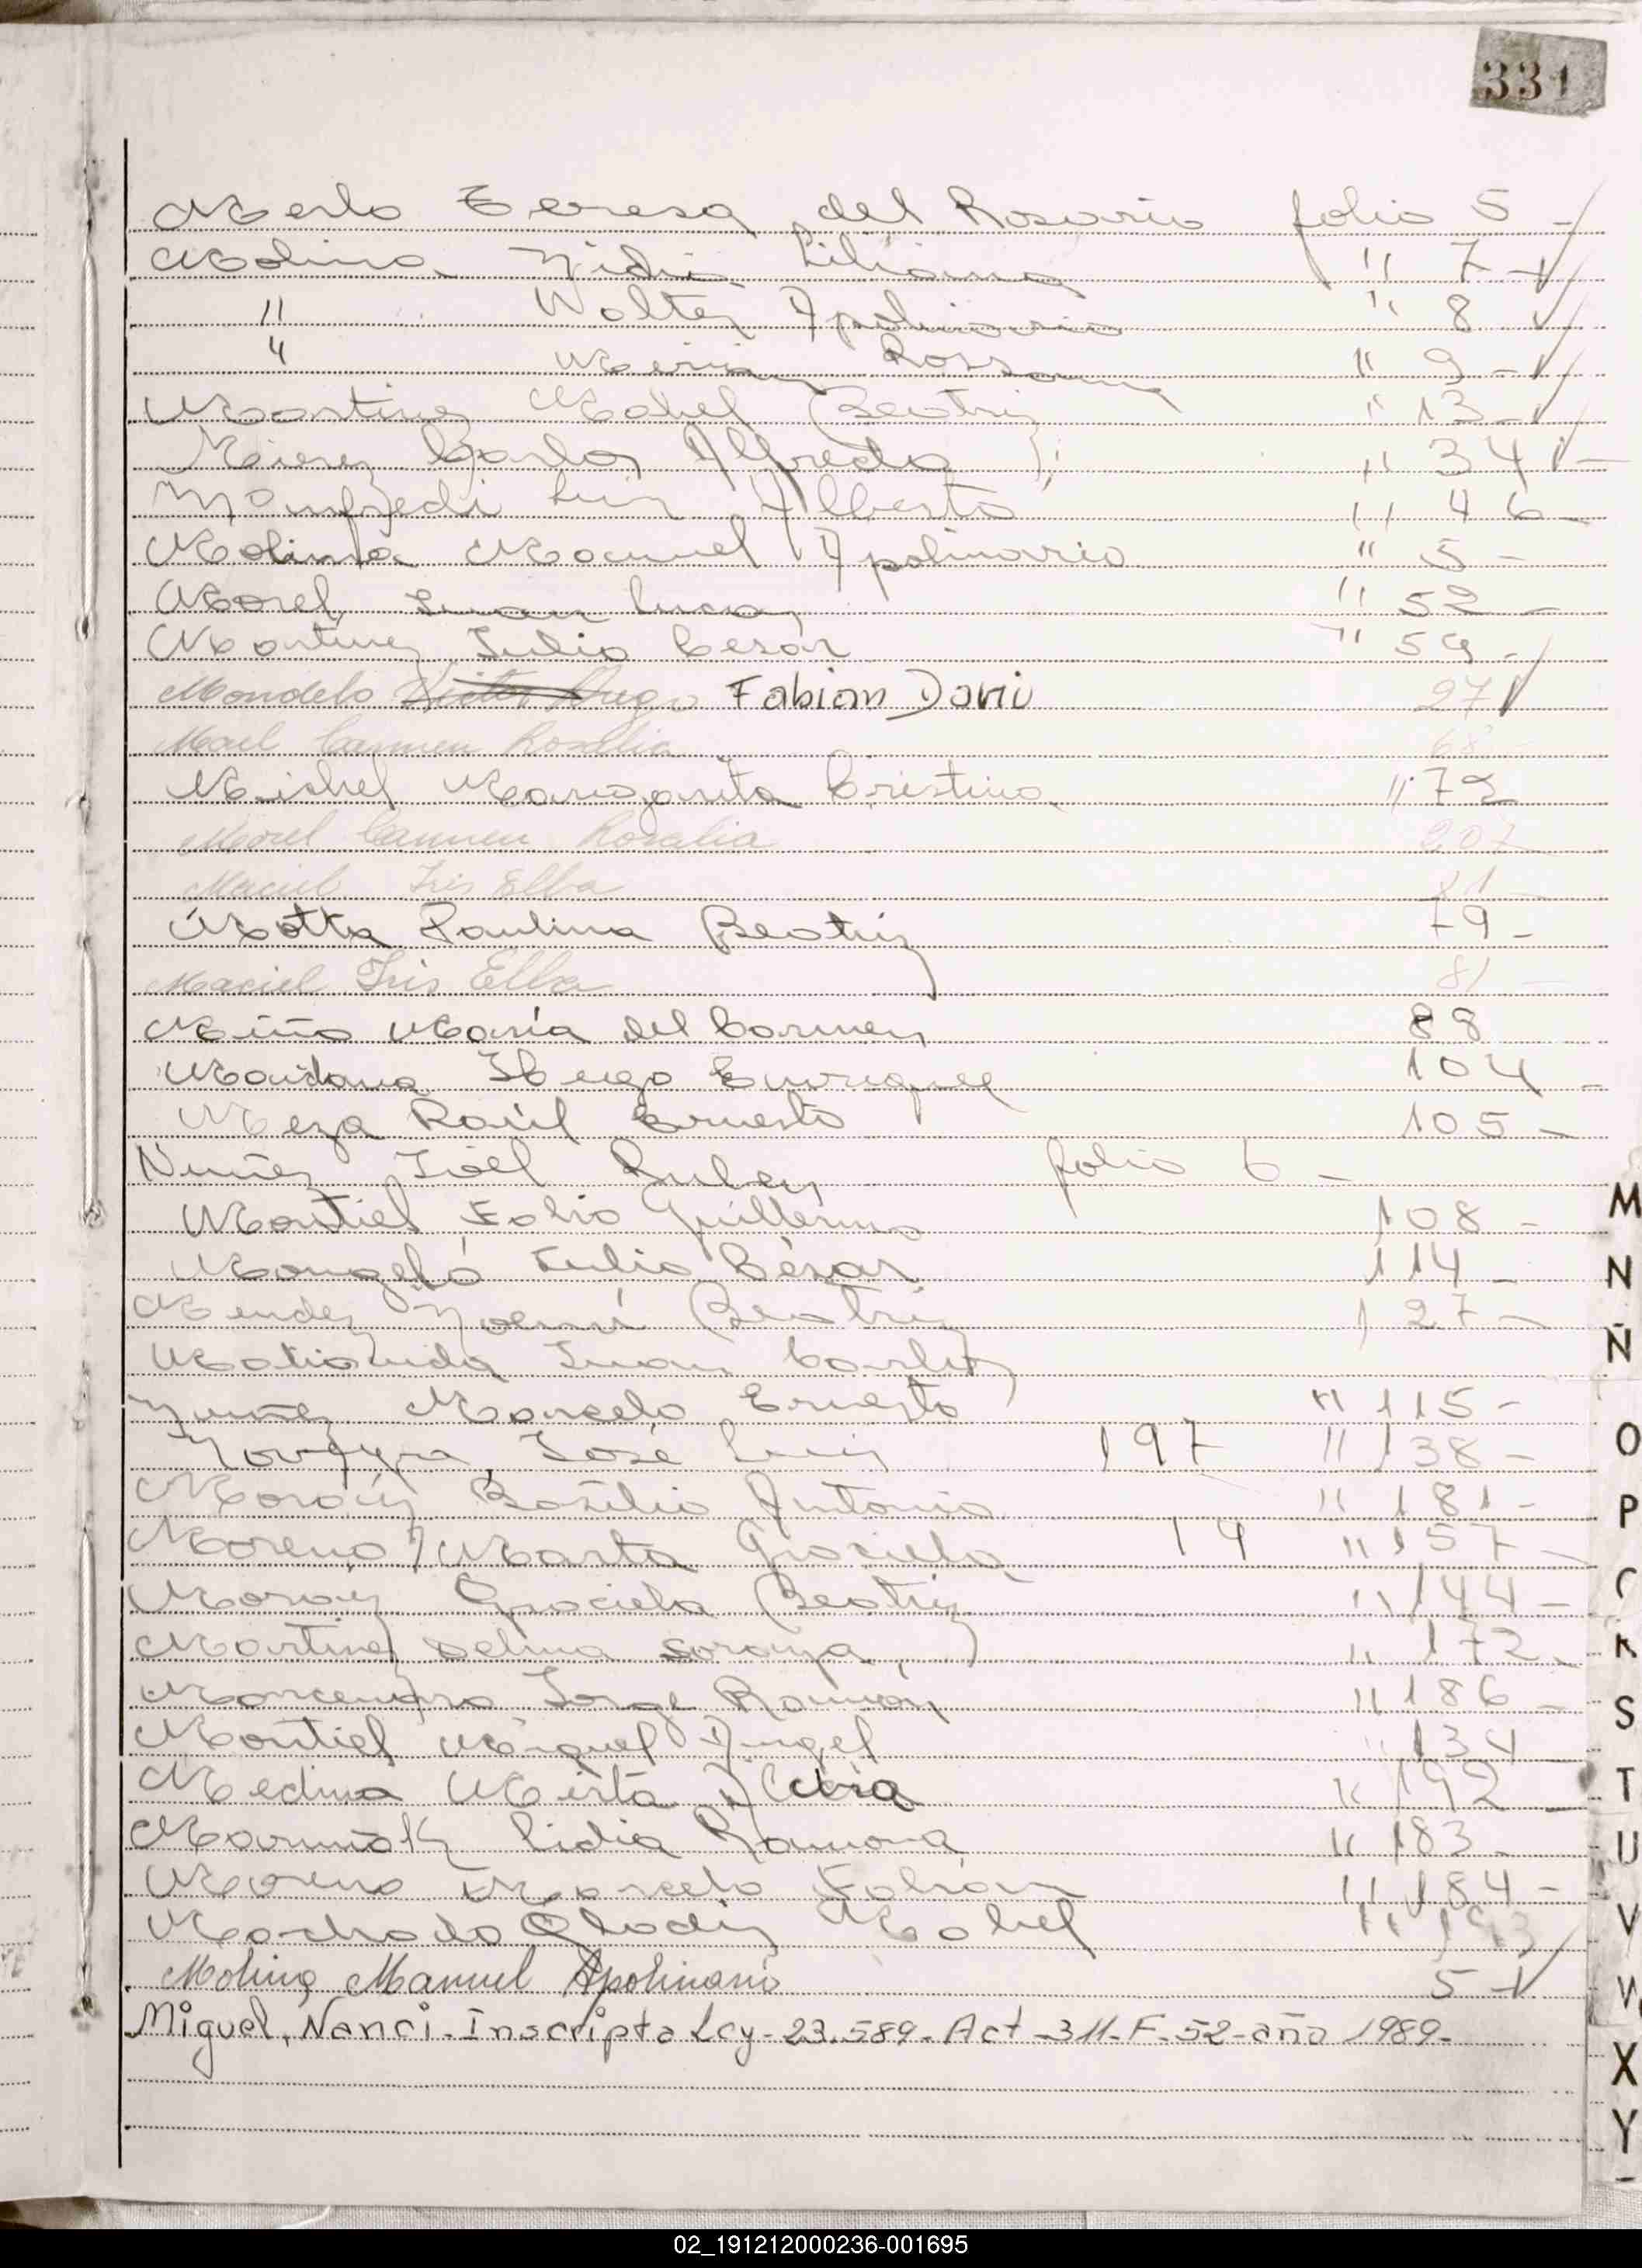 331
Merlo Teresa del Rosario folio 5 -
Molina Nidia Liliana " 7 -
" Walter Apolinario " 8
" Miriam Rossana " 9 -
Martinez Mabel Beatriz " 13 -
Mierez Carlos Alfredo " 34 -
Manfredi Luis Alberto " 46 -
Molina Manuel Apolinario " 5 -
Morel Juan Lucas " 52 -
Martinez Julio Cesar " 59 -
Mondelo Victor Hugo Fabian Dario 27
Moel Carmen Rosalia 68
Mishel Margarita Cristina " 72
Morel Carmen Rosalia 207
Maciel Iris Elba 81
Motta Paulina Beatriz 79 -
Maciel Iris Elba 81 -
Miño María del Carmen 88
Maidana Hugo Enrique 104 -
Meza Raúl Ernesto 105 -
Nuñez Joél Ruben folio 6 -
Montiel Fabio Guillermo 108 -
Mongeló Julio César 114 -
Mendez Noemí Beatriz 127 -
Juan Carlos
Nuñez Marcelo Ernesto " 115 -
José Luis 197 " 138 -
Basilio Antonio " 181 -
Moreno Marta Graciela 19 " 157 -
Graciela Beatriz " 144 -
Martinez Delma Soraya " 172 -
Jorge Ramón " 186 -
Montiel Miguel Angel " 134
Medina Mirta Alicia " 192 -
Lidia Ramona " 183 -
Moreno Marcelo Fabián " 184 -
Machado Gladis Mabel " 193
Molina Manuel Apolinario 5 -
Miguel, Nanci - Inscripta Ley - 23.589 - Act - 311 - F - 52 - año 1989 -
M
N
Ñ
O
P
R
S
T
U
V
W
X
Y
02_191212000236-001695